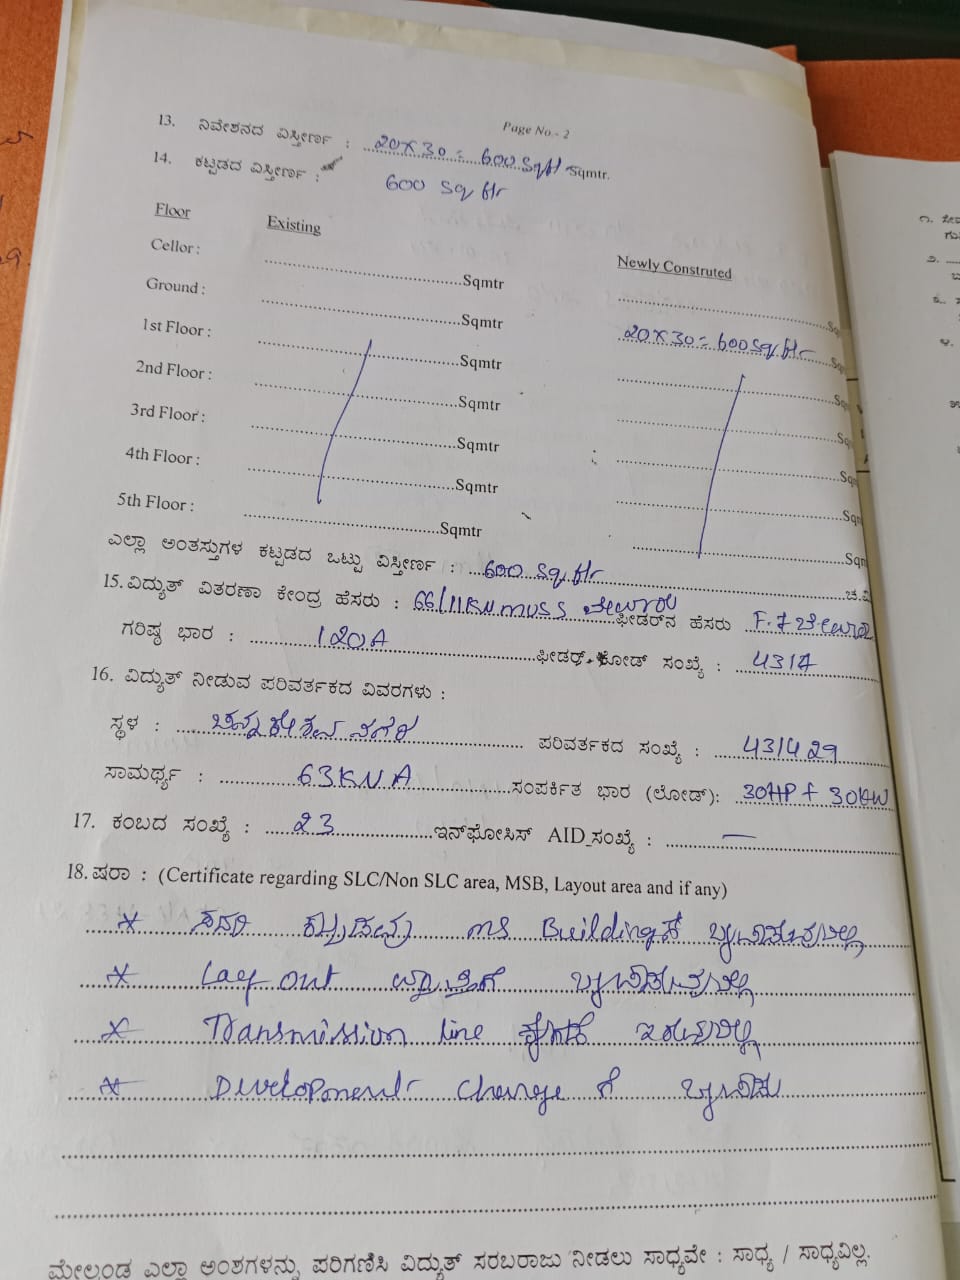 Page No.- 2
13. ನಿವೇಶನದ ವಿಸ್ತೀರ್ಣ : 20 x 30 = 600 Sqft Sqmtr.
14. ಕಟ್ಟಡದ ವಿಸ್ತೀರ್ಣ : 600 Sq ftr
Floor Existing Newly Construted
Cellor : ..........Sqmtr
Ground : ..........Sqmtr 20 x 30 = 600 Sq ftr
1st Floor : ..........Sqmtr
2nd Floor : ..........Sqmtr
3rd Floor : ..........Sqmtr
4th Floor : ..........Sqmtr
5th Floor : ..........Sqmtr
ಎಲ್ಲಾ ಅಂತಸ್ತುಗಳ ಕಟ್ಟಡದ ಒಟ್ಟು ವಿಸ್ತೀರ್ಣ : 600 Sq ftr ಚ.ಮಿ
15. ವಿದ್ಯುತ್ ವಿತರಣಾ ಕೇಂದ್ರ ಹೆಸರು : 66/11KV MUSS ಬೇಲೂರು ಫೀಡರ್‌ನ ಹೆಸರು F.7 ಬೇಲೂರು
ಗರಿಷ್ಠ ಭಾರ : 120A ಫೀಡರ್ ಕೋಡ್ ಸಂಖ್ಯೆ :
16. ವಿದ್ಯುತ್ ನೀಡುವ ಪರಿವರ್ತಕದ ವಿವರಗಳು :
ಸ್ಥಳ : ಚನ್ನಕೇಶವ ನಗರ ಪರಿವರ್ತಕದ ಸಂಖ್ಯೆ :
ಸಾಮರ್ಥ್ಯ : 63KVA ಸಂಪರ್ಕಿತ ಭಾರ (ಲೋಡ್): 30HP + 30KW
17. ಕಂಬದ ಸಂಖ್ಯೆ : 23 ಇನ್‌ಫೋಸಿಸ್ AID ಸಂಖ್ಯೆ : —
18. ಷರಾ : (Certificate regarding SLC/Non SLC area, MSB, Layout area and if any)
* ಸದರಿ ಕಟ್ಟಡವು MS Buildingಗೆ ಒಳಪಡುವುದಿಲ್ಲ
* Lay out ವ್ಯಾಪ್ತಿಗೆ ಒಳಪಡುವುದಿಲ್ಲ
* Transmission line ಕೆಳಗಡೆ ಇರುವುದಿಲ್ಲ
* Development Charge ಗೆ
ಮೇಲ್ಕಂಡ ಎಲ್ಲಾ ಅಂಶಗಳನ್ನು ಪರಿಗಣಿಸಿ ವಿದ್ಯುತ್ ಸರಬರಾಜು ನೀಡಲು ಸಾಧ್ಯವೇ : ಸಾಧ್ಯ / ಸಾಧ್ಯವಿಲ್ಲ.